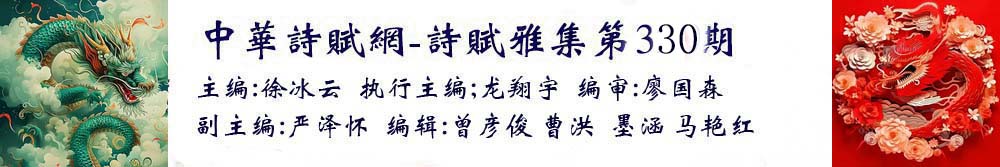 中華詩賦網-詩賦雅集第330期
主编:徐冰云 执行主编;龙翔宇 编审:廖国森
副主编:严泽怀 编辑:曾彦俊 曹洪 墨涵 马艳红